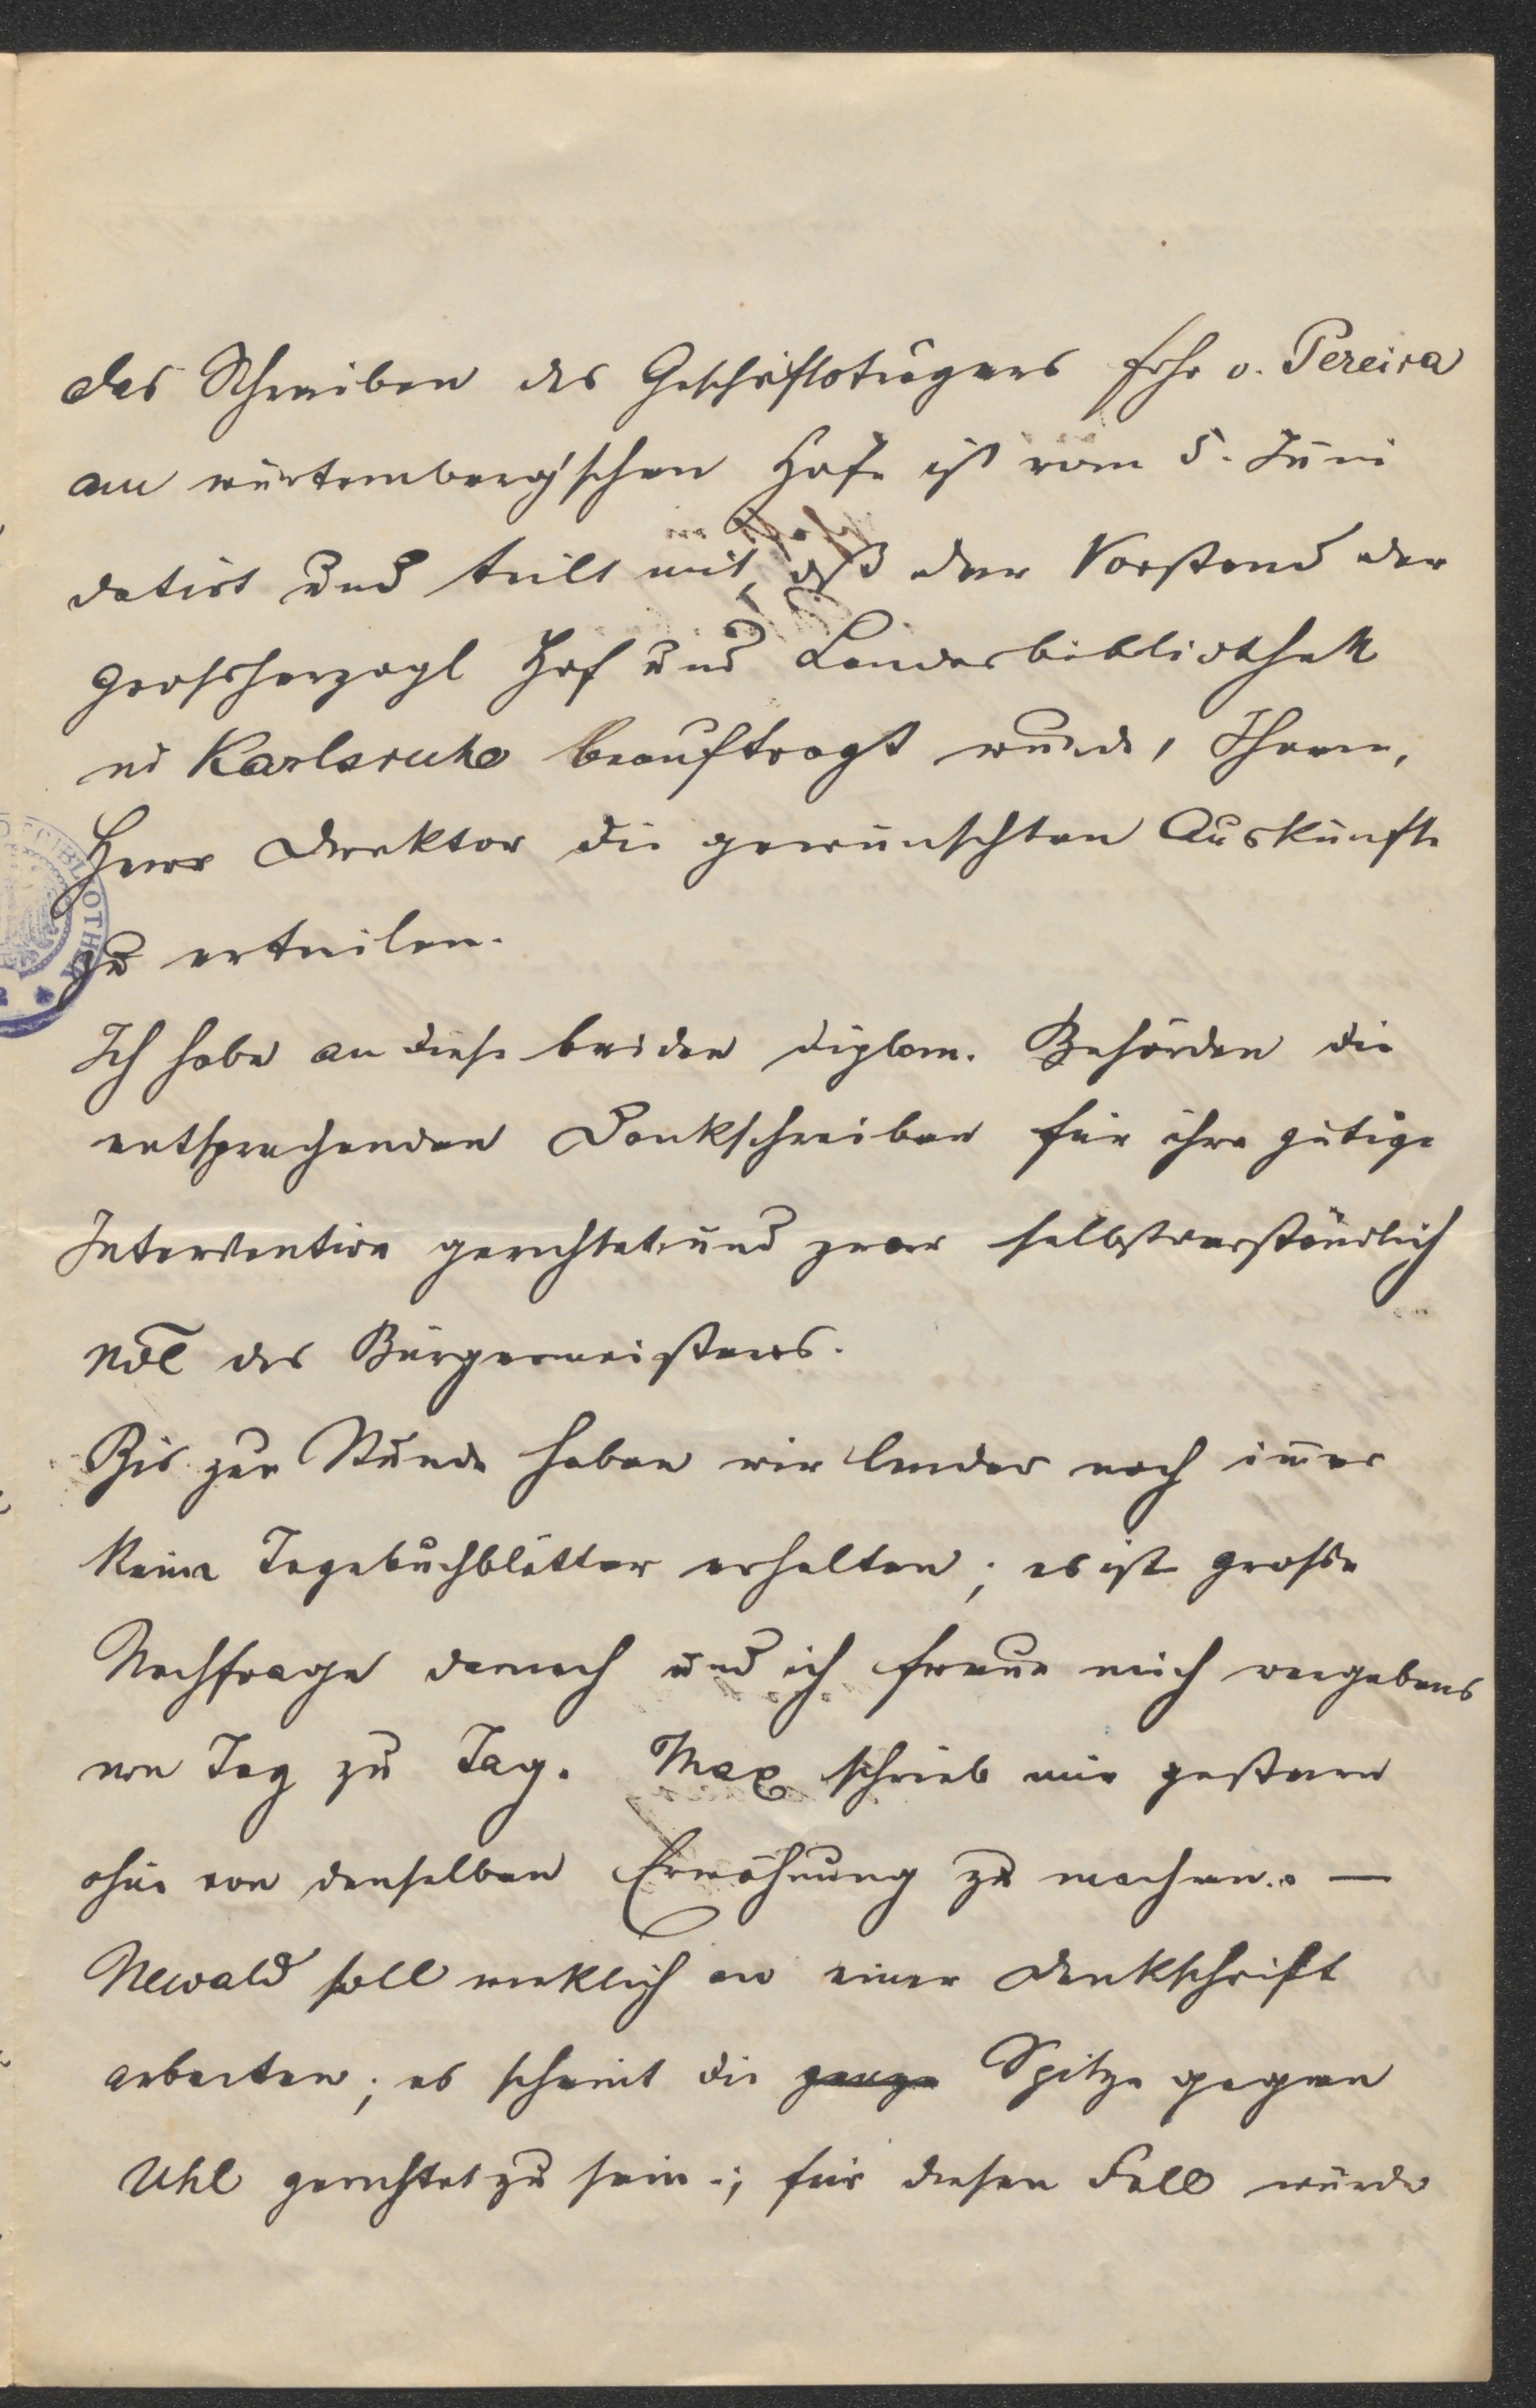 das Schreiben des Geschäftsträgers Frhr v. Pereira
am würtemberg'schen Hofe ist vom 5. Juni
datirt und teilt mit, daß der Vorstand der
grossherzogl Hof und Landesbibliothek
in Karlsruhe beauftragt wurde, Ihnen,
Herr Direktor die gewünschten Auskünfte
zu erteilen.
Ich habe an diese beiden diplom. Behörden die
entsprechenden Dankschreiben für ihre gütige
Intervention gerichtet und zwar selbstverständlich
nõe des Bürgermeisters.
Bis zur Stunde haben wir leider noch im̅er
keine Tagebuchblätter erhalten; es ist grosse
Nachfrage darnach und ich freue mich vergebens
von Tag zu Tag. Max schrieb mir gestern
ohne von denselben Erwähnung zu machen. —
Newald soll wirklich an einer Denkschrift
arbeiten; es scheint die ganze Spitze gegen
Uhl gerichtet zu sein; für diesen Fall würde